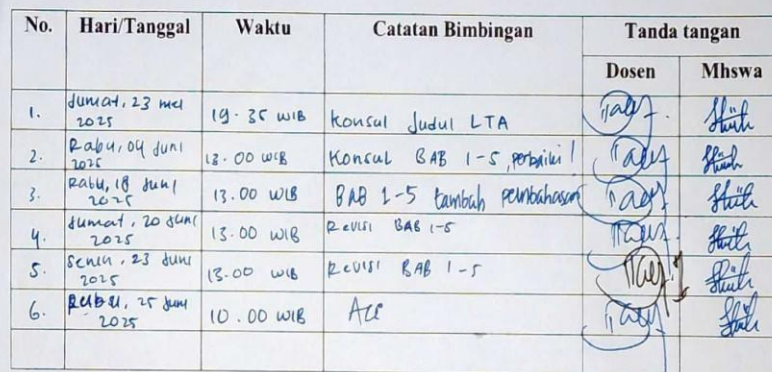 No. Hari/Tanggal Waktu Catatan Bimbingan Tanda tangan
Dosen Mhswa
1. Jumat, 23 mei 2025 19.35 WIB Konsul Judul LTA
2. Rabu, 04 Juni 2025 13.00 WIB Konsul BAB 1-5, perbaiki!
3. Rabu, 18 Juni 2025 13.00 WIB BAB 1-5 tambah pembahasan
4. Jumat, 20 Juni 2025 13.00 WIB Revisi BAB 1-5
5. Senin, 23 Juni 2025 13.00 WIB Revisi BAB 1-5
6. Rabu, 25 Juni 2025 10.00 WIB Acc